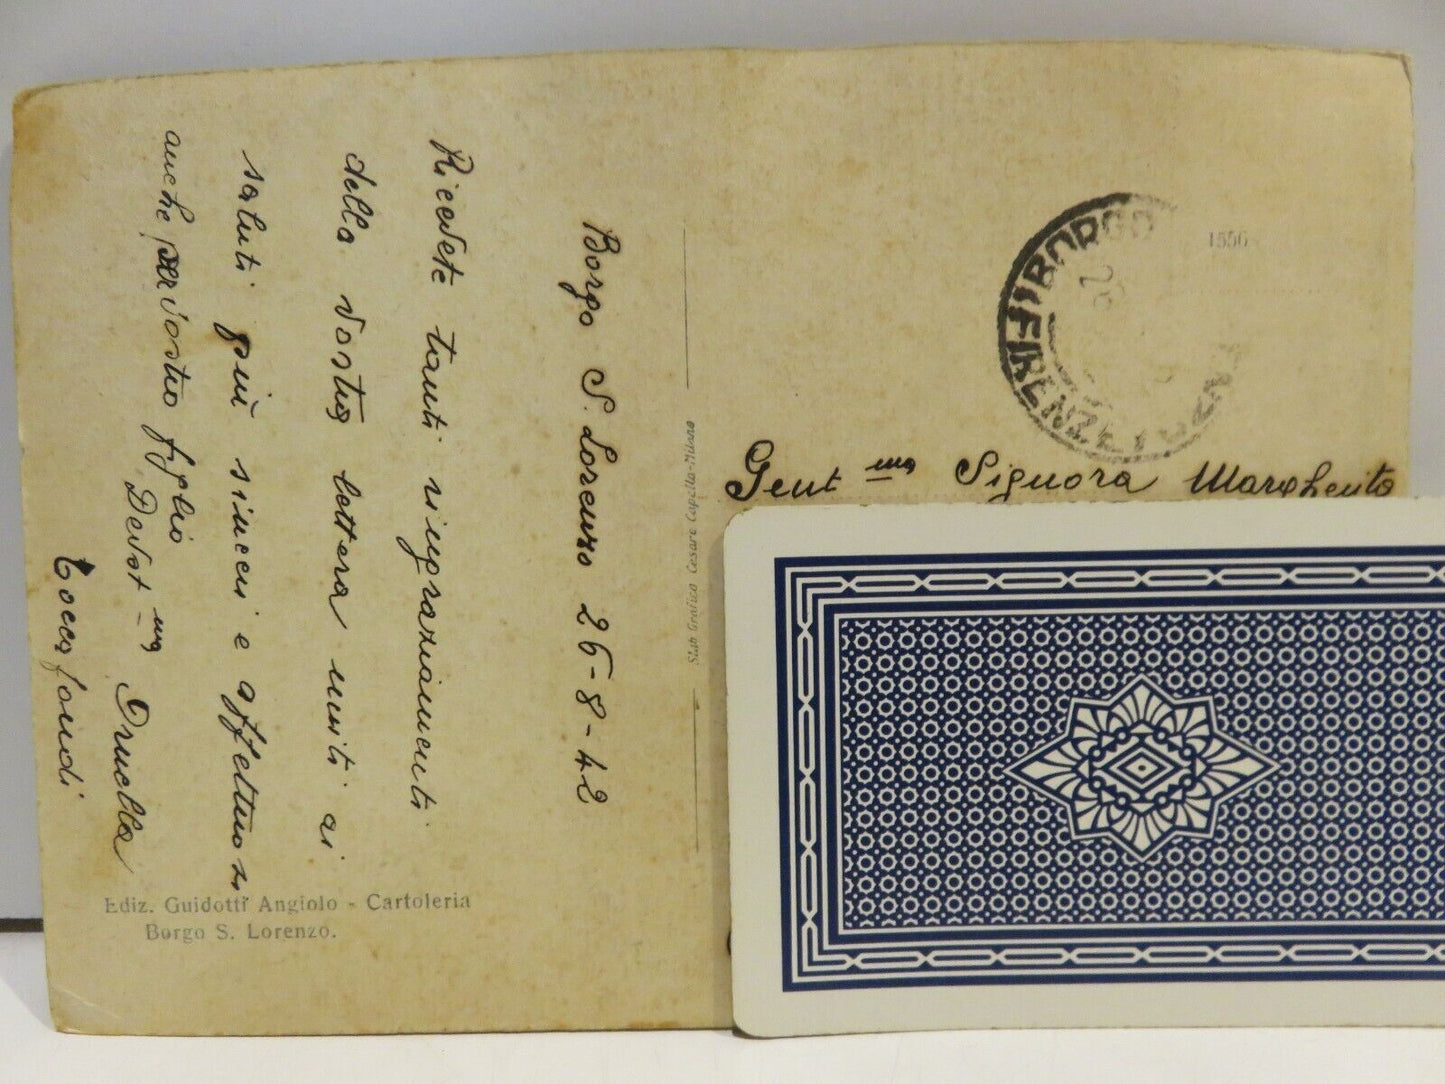 Borgo S. Lorenzo 26-8-42
Ricevete tanti ringraziamenti
della vostra lettera uniti ai
saluti più sinceri e affettuosi
anche per vostro figlio
Devot ma Ornella
Toccafondi
Ediz. Guidotti Angiolo - Cartoleria
Borgo S. Lorenzo.
Stab Grafico Cesare Capello-Milano
1556
BORGO
FIRENZE
Gent ma Signora Margherita